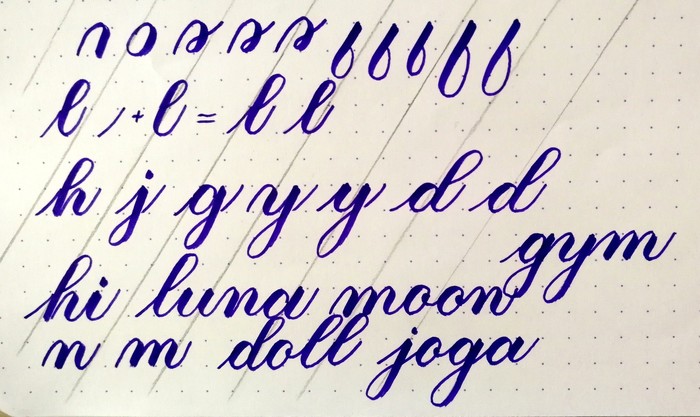 l , + l = l l
h j g y y d d
gym
hi luna moon
n m doll joga